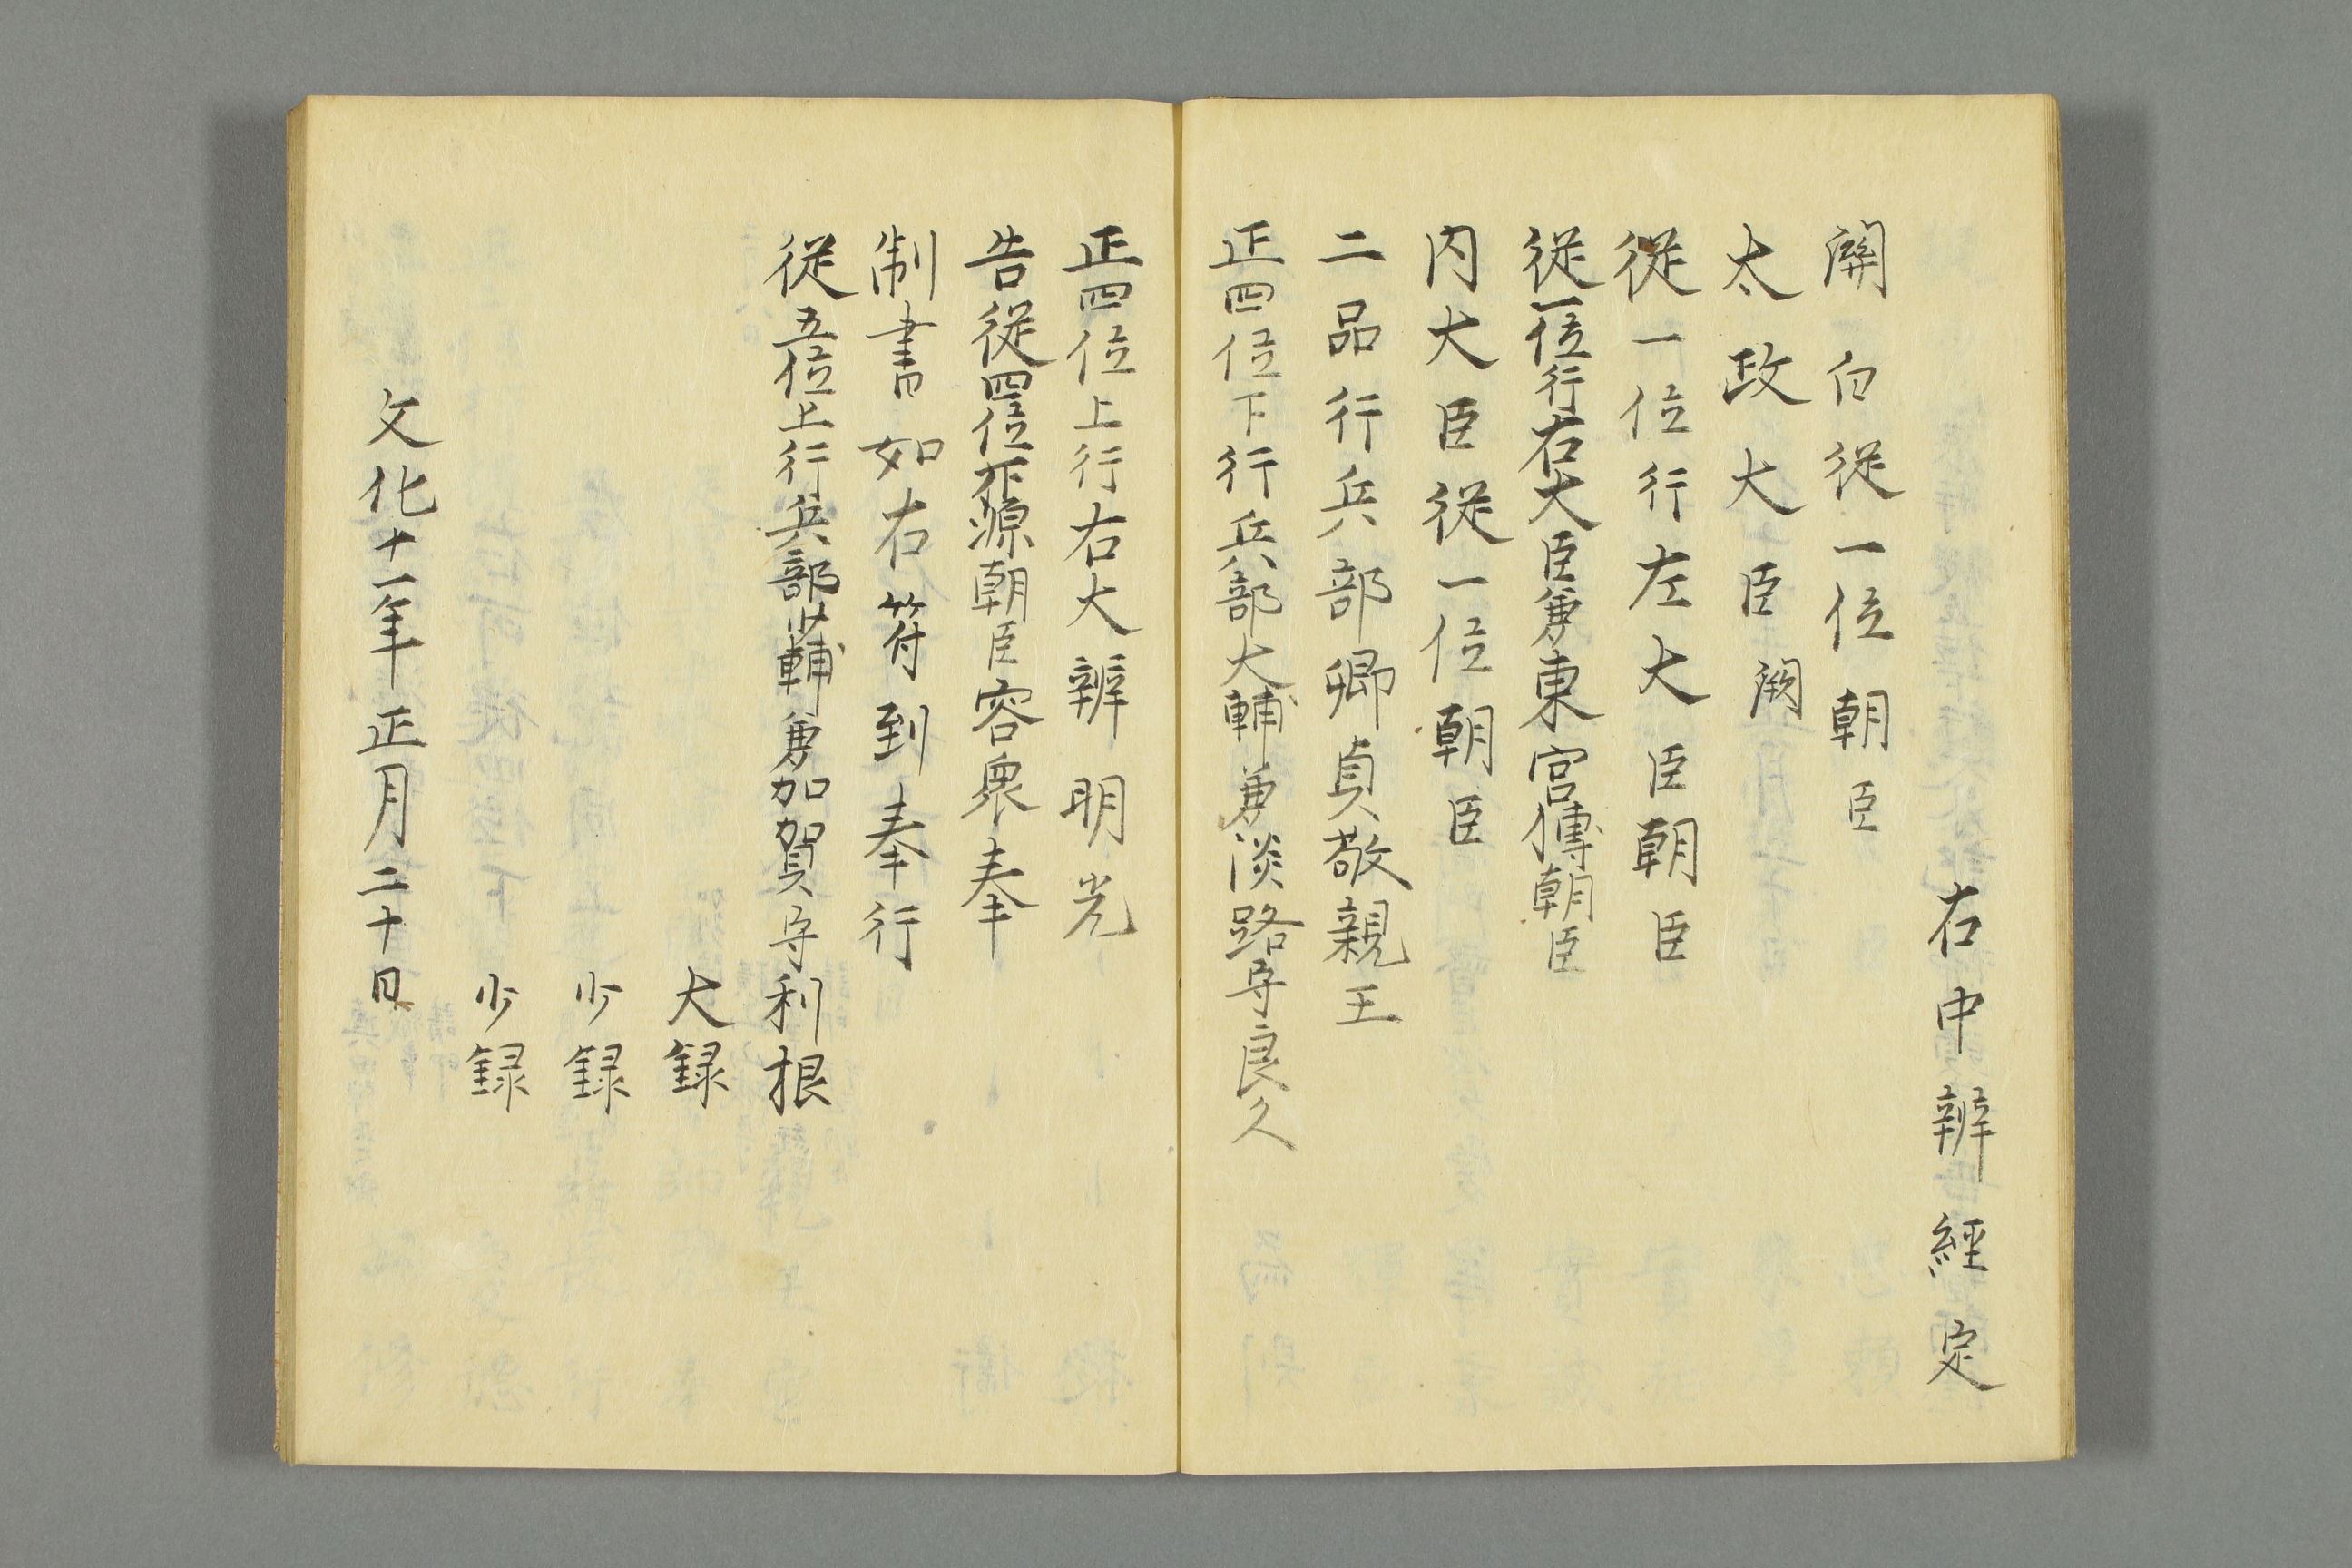 右中辨經定
關白從一位朝臣
太政大臣闕
從一位行左大臣朝臣
從一位行右大臣兼東宮傅朝臣
内大臣從一位朝臣
二品行兵部卿貞敬親王
正四位下行兵部大輔兼淡路守良久
正四位上行右大辨明光
告從四位下源朝臣容衆奉
制書如右符到奉行
從五位上行兵部少輔兼加賀守利根
大録
少録
少録
文化十一年正月二十日